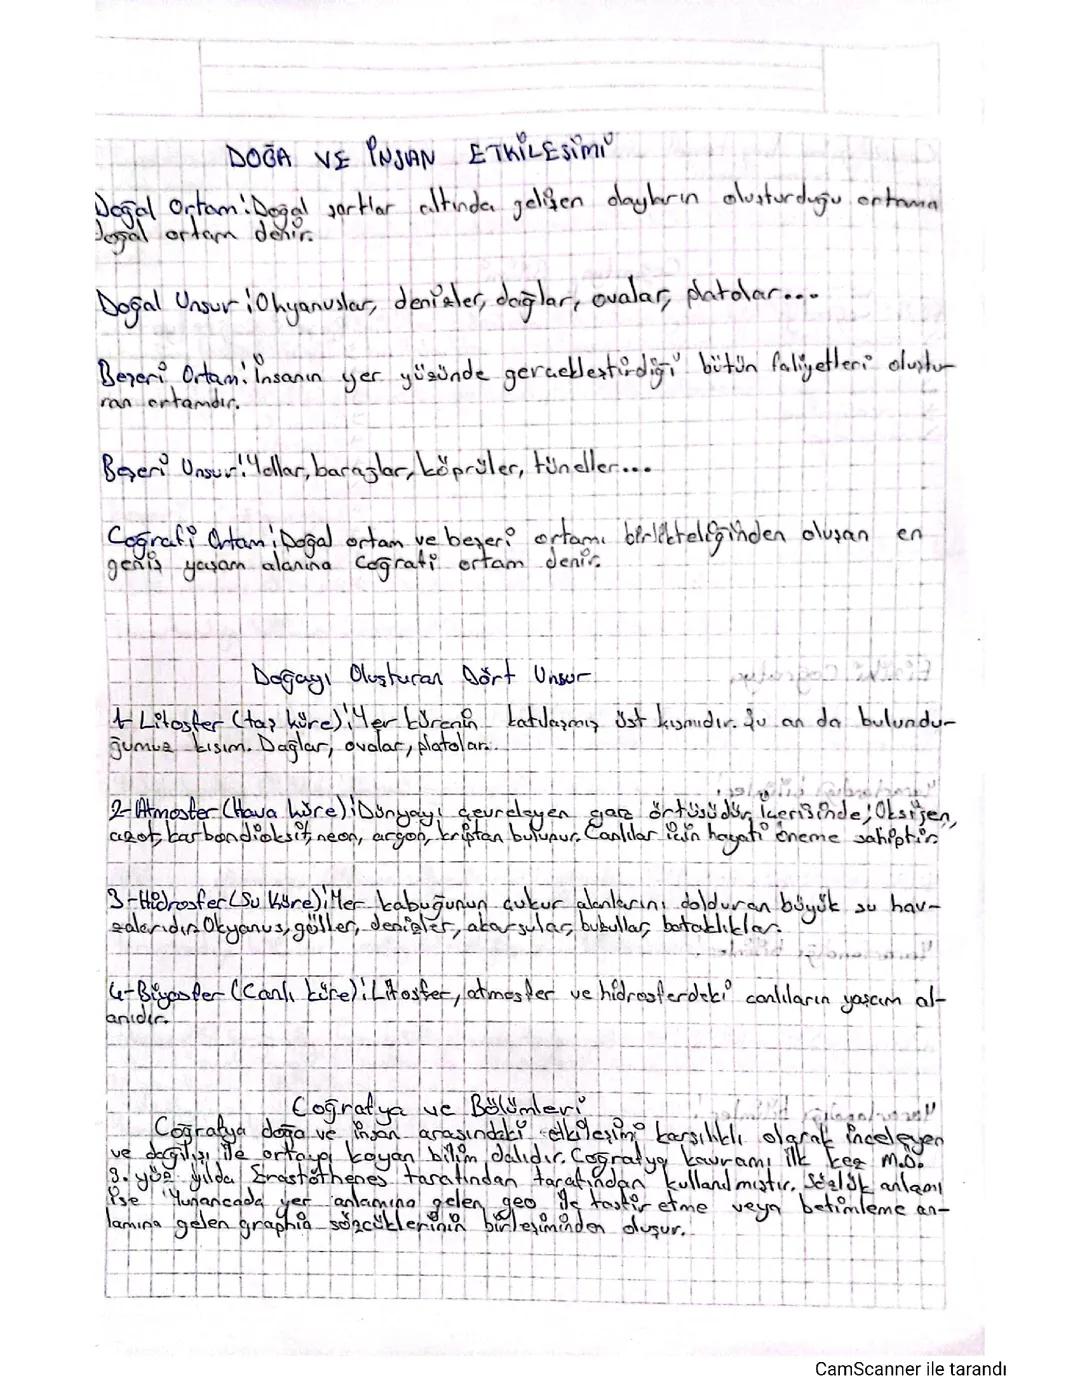 DOĞA VE İNSAN ETKİLEŞİMİ
Doğal Ortam: Doğal şartlar altında gelişen olayların oluşturduğu ortama
doğal ortam denir.
Doğal Unsur: Okyanuslar, denizler, dağlar, ovalar, platolar...
Beşeri Ortam: İnsanın yer yüzünde gerçekleştirdiği bütün faliyetleri oluştu-
ran ortamdır.
Beşeri Unsur: Yollar, barajlar, köprüler, tüneller...
Coğrafi Ortam: Doğal ortam ve beşeri ortamı birlikteliğinden oluşan en
geniş yaşam alanına coğrafi ortam denir.
Doğayı Oluşturan Dört Unsur
1- Litosfer (taş küre): Yer kürenin katılaşmış üst kısmıdır. Şu an da bulundu-
ğumuz kısım. Dağlar, ovalar, platolar..
2- Atmosfer (Hava küre): Dünyayı çevreleyen gaz örtüsüdür, İçerisinde; Oksijen,
azot, karbondioksit, neon, argon, kriptan bulunur. Canlılar için hayati öneme sahiptir.
3- Hidrosfer (Su Küre): Yer kabuğunun çukur alanlarını dolduran büyük su hav-
zalarıdır. Okyanus, göller, denizler, akarsular, buzullar, bataklıklar.
4- Biyosfer (Canlı küre): Litosfer, atmosfer ve hidrosferdeki canlıların yaşam al-
anıdır.
Coğrafya ve Bölümleri
Coğrafya doğa ve insan arasındaki etkileşimi karşılıklı olarak inceleyen
ve dağılışı ile ortaya koyan bilim dalıdır. Coğrafya kavramı ilk kez M.Ö.
3. yüz yılda Erastothenes tarafından tarafından kullandmıştır. Sözlük anlamı
ise Yunancada yer anlamına gelen geo ile tasfir etme veya betimleme an-
lamına gelen graphia sözcüklerinin birleşiminden oluşur.
CamScanner ile tarandı